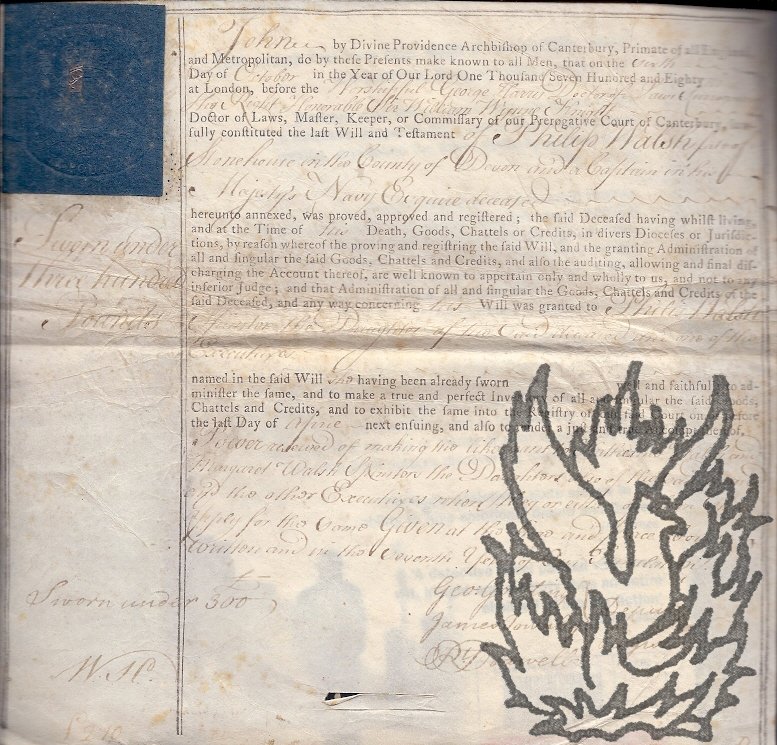 John by Divine Providence Archbiſhop of Canterbury, Primate of all England
and Metropolitan, do by theſe Preſents make known to all Men, that on the
Day of October in the Year of Our Lord One Thouſand Seven Hundred and Eighty
at London, before the Worshipful George Harris Doctor of Laws
the Right Honorable Sir William Wynne Knight
Doctor of Laws, Maſter, Keeper, or Commiſſary of our Prerogative Court of Canterbury,
fully conſtituted the laſt Will and Teſtament of Philip Walsh late of
Stonehouse in the County of Devon and a Captain in his
Majesty's Navy Esquire deceased
hereunto annexed, was proved, approved and regiſtered; the ſaid Deceaſed having whilſt living,
and at the Time of his Death, Goods, Chattels or Credits, in divers Dioceſes or Juriſdic-
tions, by reaſon whereof the proving and regiſtring the ſaid Will, and the granting Adminiſtration of
all and ſingular the ſaid Goods, Chattels and Credits, and alſo the auditing, allowing and final diſ-
charging the Account thereof, are well known to appertain only and wholly to us, and not to any
inferior Judge; and that Adminiſtration of all and ſingular the Goods, Chattels and Credits of the
ſaid Deceaſed, and any way concerning his Will was granted to Walsh
Spinster the Daughter of the and one of the
Executrixes
named in the ſaid Will she having been already ſworn well and faithfully to ad-
miniſter the ſame, and to make a true and perfect of all and ſingular the ſaid Goods,
Chattels and Credits, and to exhibit the ſame into the Regiſtry of our ſaid Court on or before
the laſt Day of April next enſuing, and alſo to render a juſt and true Account thereof.
Power reserved of making the like Grant to
Margaret Walsh Spinsters the Daughters also of the
and the other Executrixes when they or either of them
apply for the same Given at the time and place above
written and in the seventh Year of Our Translation
Sworn under
Three hundred
Pounds
Sworn under 300
Geo: Gostling
James
Deputy